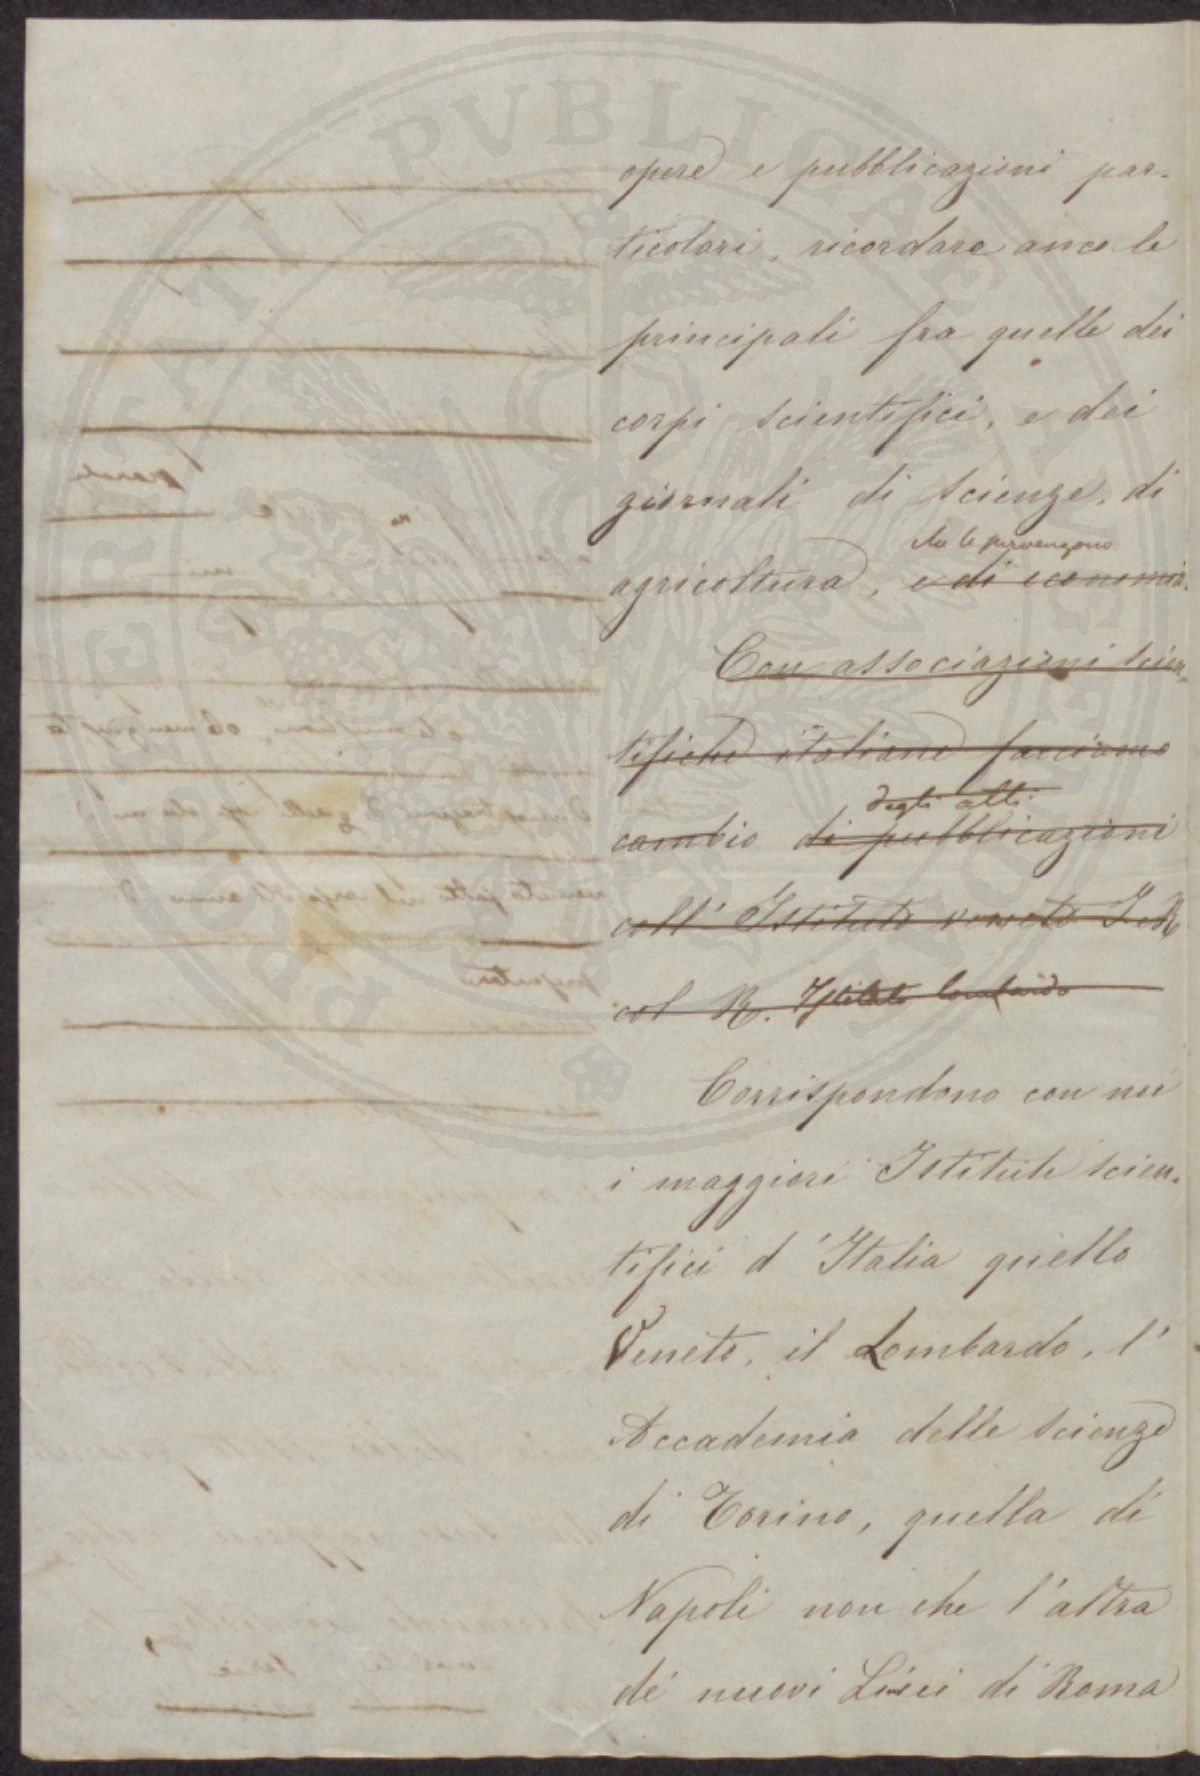 opere e pubblicazioni par-
ticolari, ricordare anco le
principali fra quelle dei
corpi scientifici, e dei
giornali di scienze, di
che le pervengono
agricoltura, e di economia.
Con associazioni scien-
tifiche italiane facciamo
degli atti
cambio di pubblicazioni
coll' Istituto veneto I. R
col R. Istituto lombardo
Corrispondono con noi
i maggiori Istituti scien-
tifici d'Italia quello
Veneto, il Lombardo, l'
Accademia delle scienze
di Torino, quella di
Napoli non che l'altra
de' nuovi Lincei di Roma